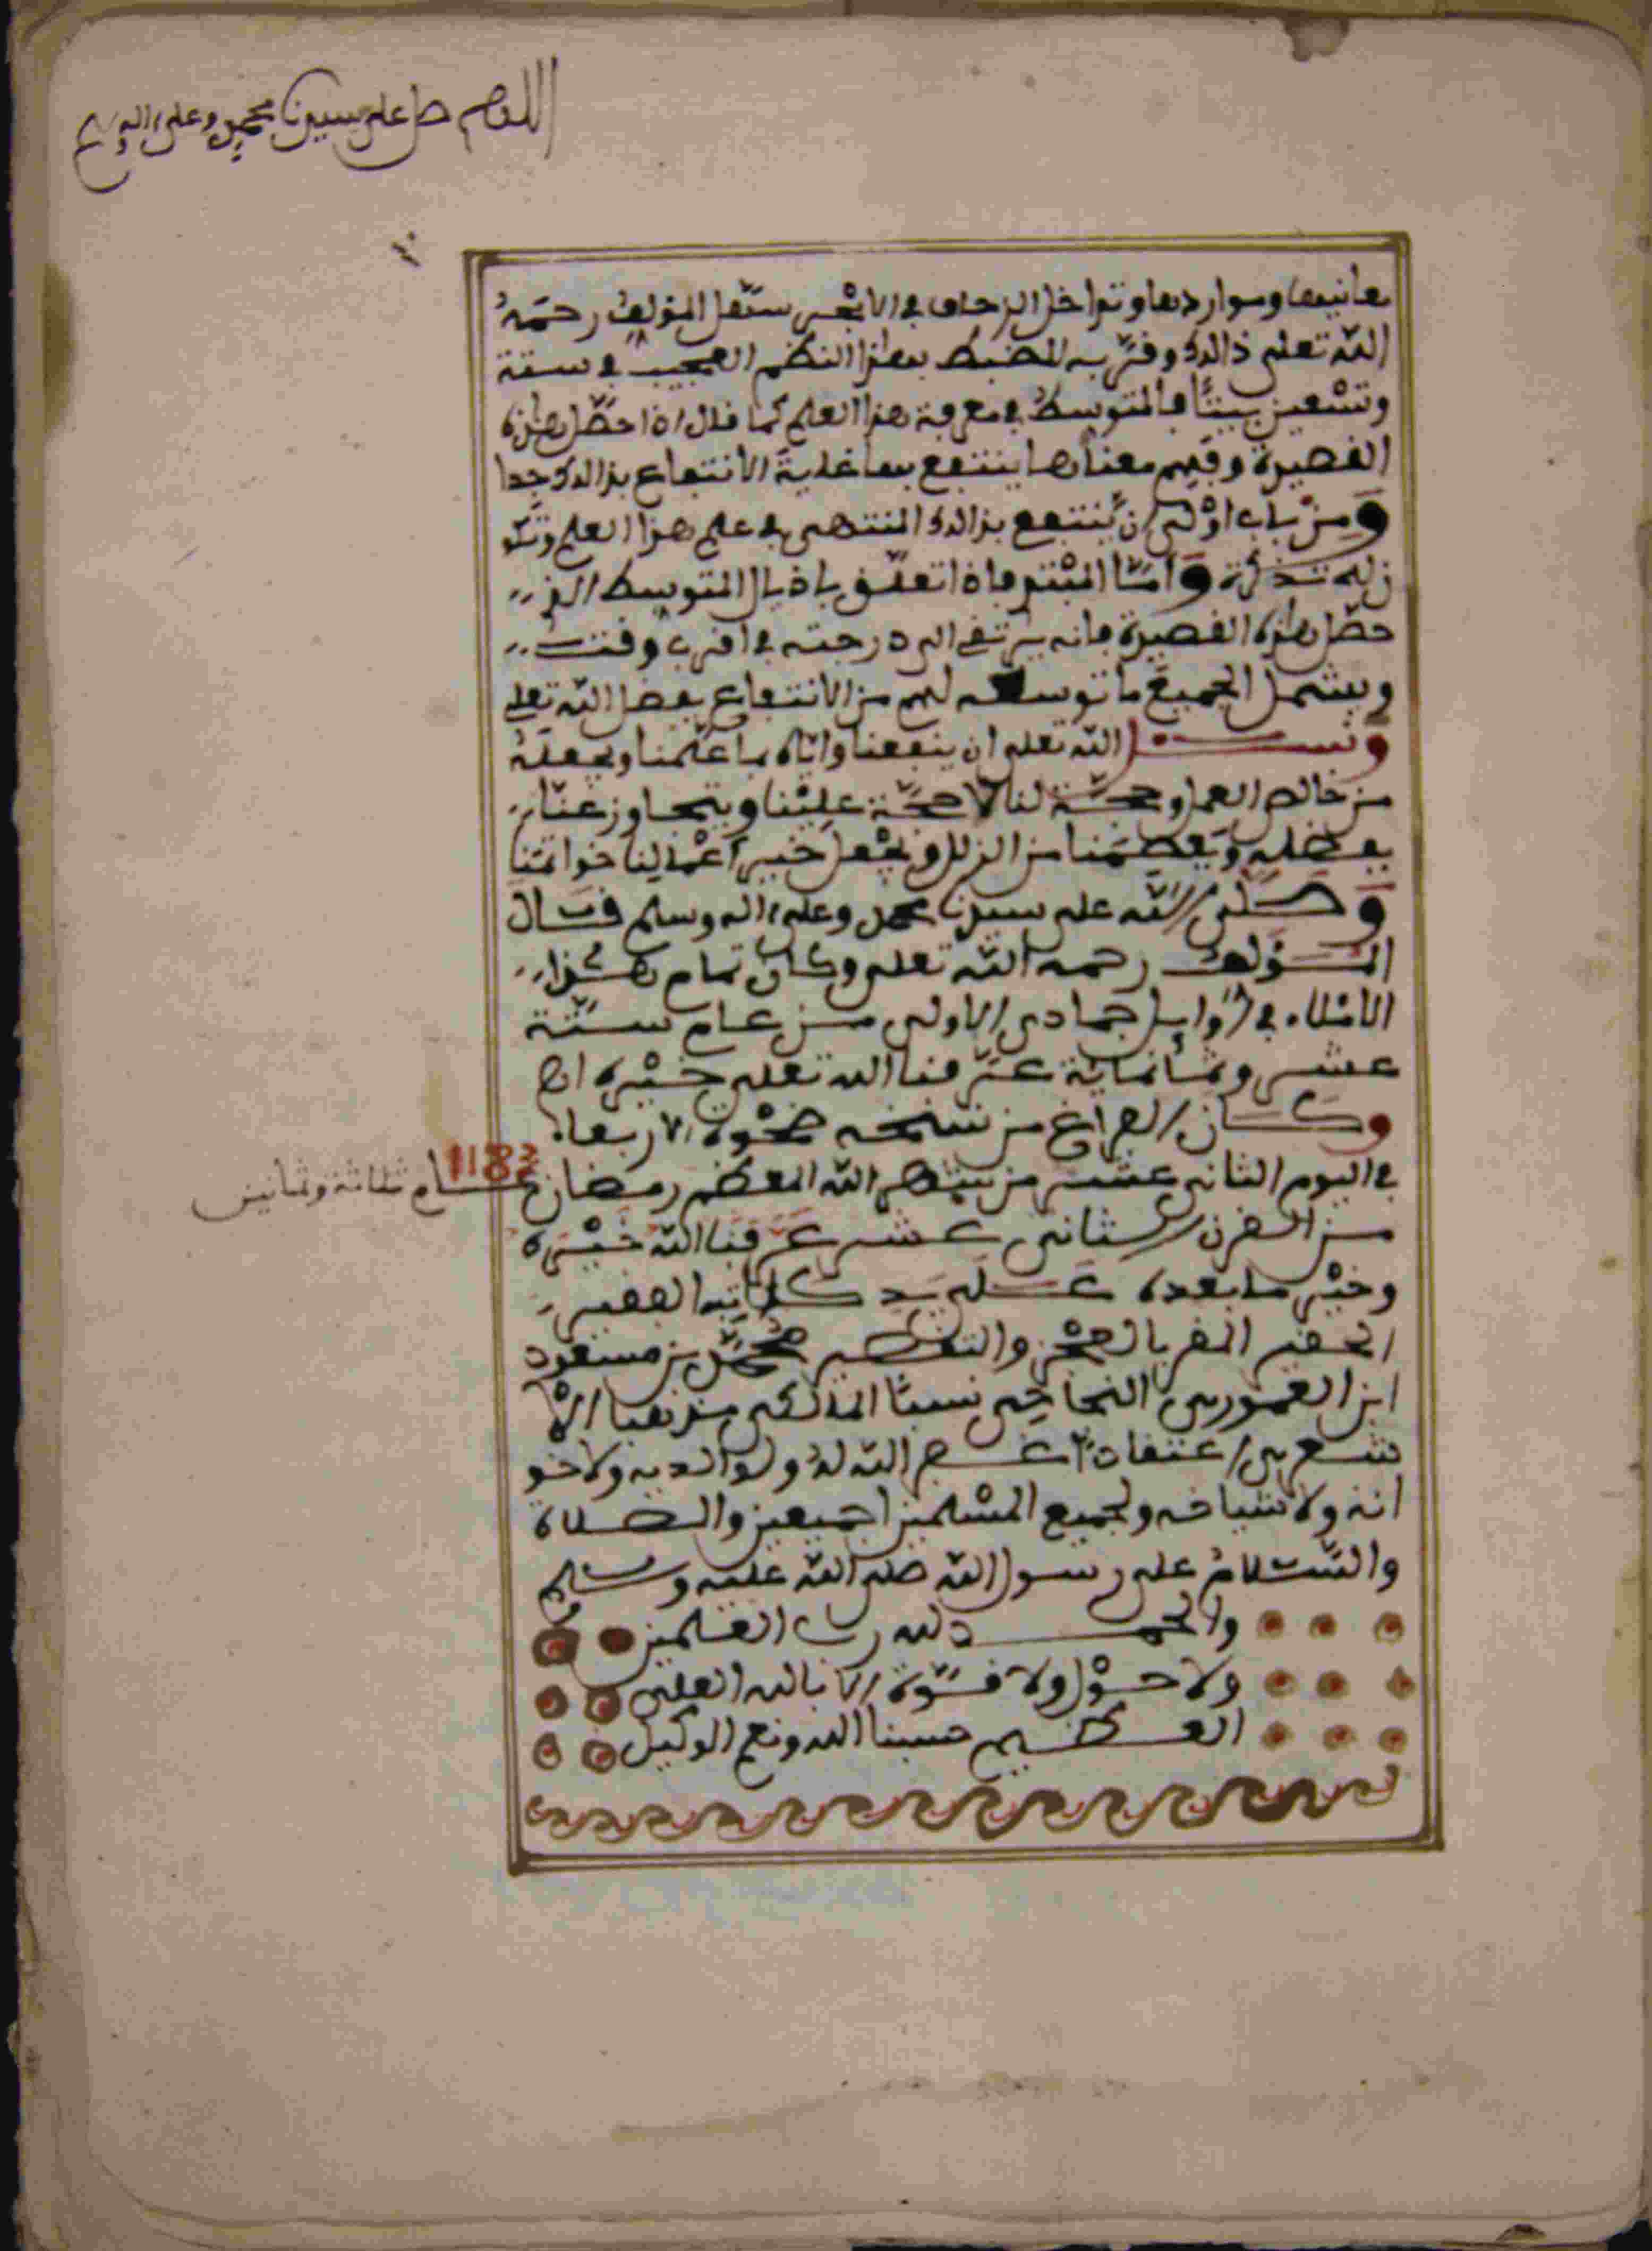 اللهم صل على سيدنا محمد وعلى اله
معانيها وموارد هاو تداخل الزحاف في الابحر سهل المؤلف رحمه
الله تعلى ذالك وقرب للضبط بهاذا النظم العجيب في ستة
وتسعين بيتا فالمتوسط في معرفة هذا العلم كما قال اذا حصل هاذه
القصيدة وفهم معناها ينتفع بها غاية الانتفاع بذالك جدا
ومن باب اولى ان ينتفع بذالك المنتهى في علم هذا العلم وتكو
ن له تذكرة واما المبتدي فاذا تعلق باذيال المتوسط الذي
حصل هاذه القصيدة فانه يرتقى الى درجته في اقرب وقت
ويشمل الجميع ما توسط لهم من الانتفاع بفضل الله تعلى
ونسئل الله تعلى ان ينفعنا واياه بما علمنا ويجعله
من خالص العمل وحجة لنا لا حجة علينا ويتجاوز عنا
بفضله ويعصمنا من الزلل ويجعل خير اعمالنا خواتمنا
وصلى الله على سيدنا محمد وعلى اله وسلم قال
المؤلف رحمه الله تعلى وكان تمام هذا
الاملاء في اوايل جمادى الاولى من عام ستة
عشر وثمانماية عرفنا الله تعلى خيره اه
وكان الفراغ من نسخه ضحوة الاربعا
في اليوم الثانى عشر من شهر الله المعظم رمضان
عام ثلاثة وثمانين
1183
من القرن الثانى عشر عرفنا الله خيره
وخير ما بعده على يد كاتبه الفقير
الحقير المقر بالعجز والتقصير محمد بن مسعود
ابن العمورى النجاحى نسبا المالكى مذهبا الا
شعرى اعتقادا غفر الله له ولوالديه ولاخو
انه ولاشياخه ولجميع المسلمين اجمعين والصلاة
والسلام على رسول الله صلى الله عليه وسلم
والحمد لله رب العلمين
ولا حول ولا قوة الا بالله العلى
العظيم حسبنا الله ونعم الوكيل